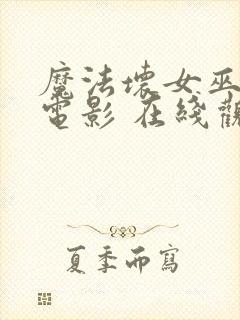 魔法壞女巫
電影 在綫觀
夏季而寫